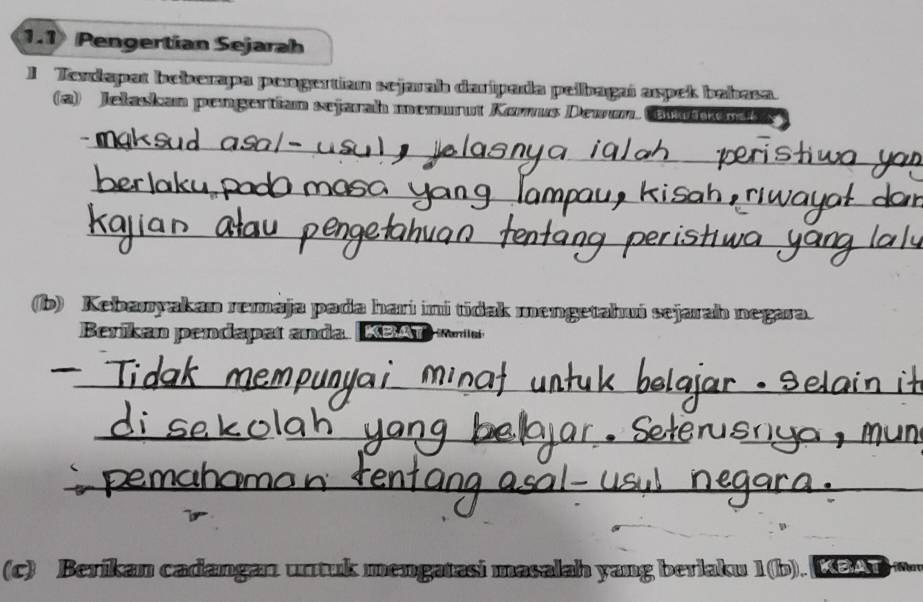 1.1 Pengertian Sejarah
1 Terdapat beberapa pengertian sejarah daripada pelbagai aspek bahasa.
(a) Jelaskan pengertian sejarah menurut Kamus Dewan. Buku Teks m.s. 4
- maksud asal-usul, jelasnya ialah peristiwa yan
berlaku pada masa yang lampau, kisah, riwayat dan
kajian atau pengetahuan tentang peristiwa yang lalu
(b) Kebanyakan remaja pada hari ini tidak mengetahui sejarah negara.
Berikan pendapat anda. KBAT Menilai
- Tidak mempunyai minat untuk belajar. Selain it
di sekolah yang belajar. Seterusnya, mun
pemahaman tentang asal-usul negara.
(c) Berikan cadangan untuk mengatasi masalah yang berlaku 1(b). KBAT